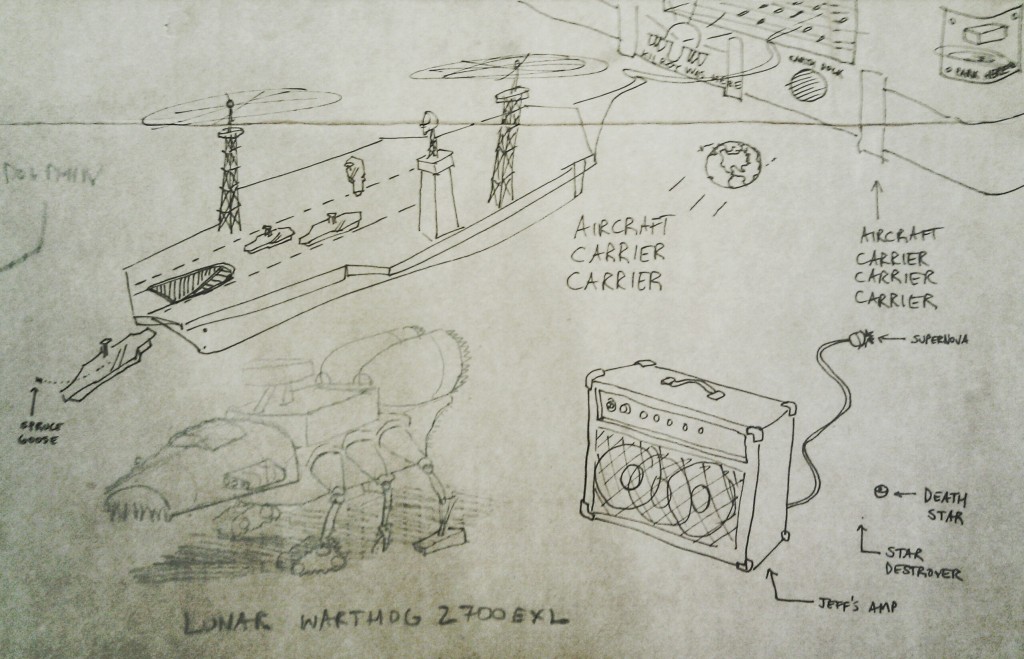 KILROY WAS HERE
EARTH DOCK
PARK HERE
AIRCRAFT
CARRIER
CARRIER
AIRCRAFT
CARRIER
CARRIER
CARRIER
SUPERNOVA
SPRUCE
GOOSE
DEATH
STAR
STAR
DESTROYER
JEFF'S AMP
LUNAR WARTHOG 2700EXL